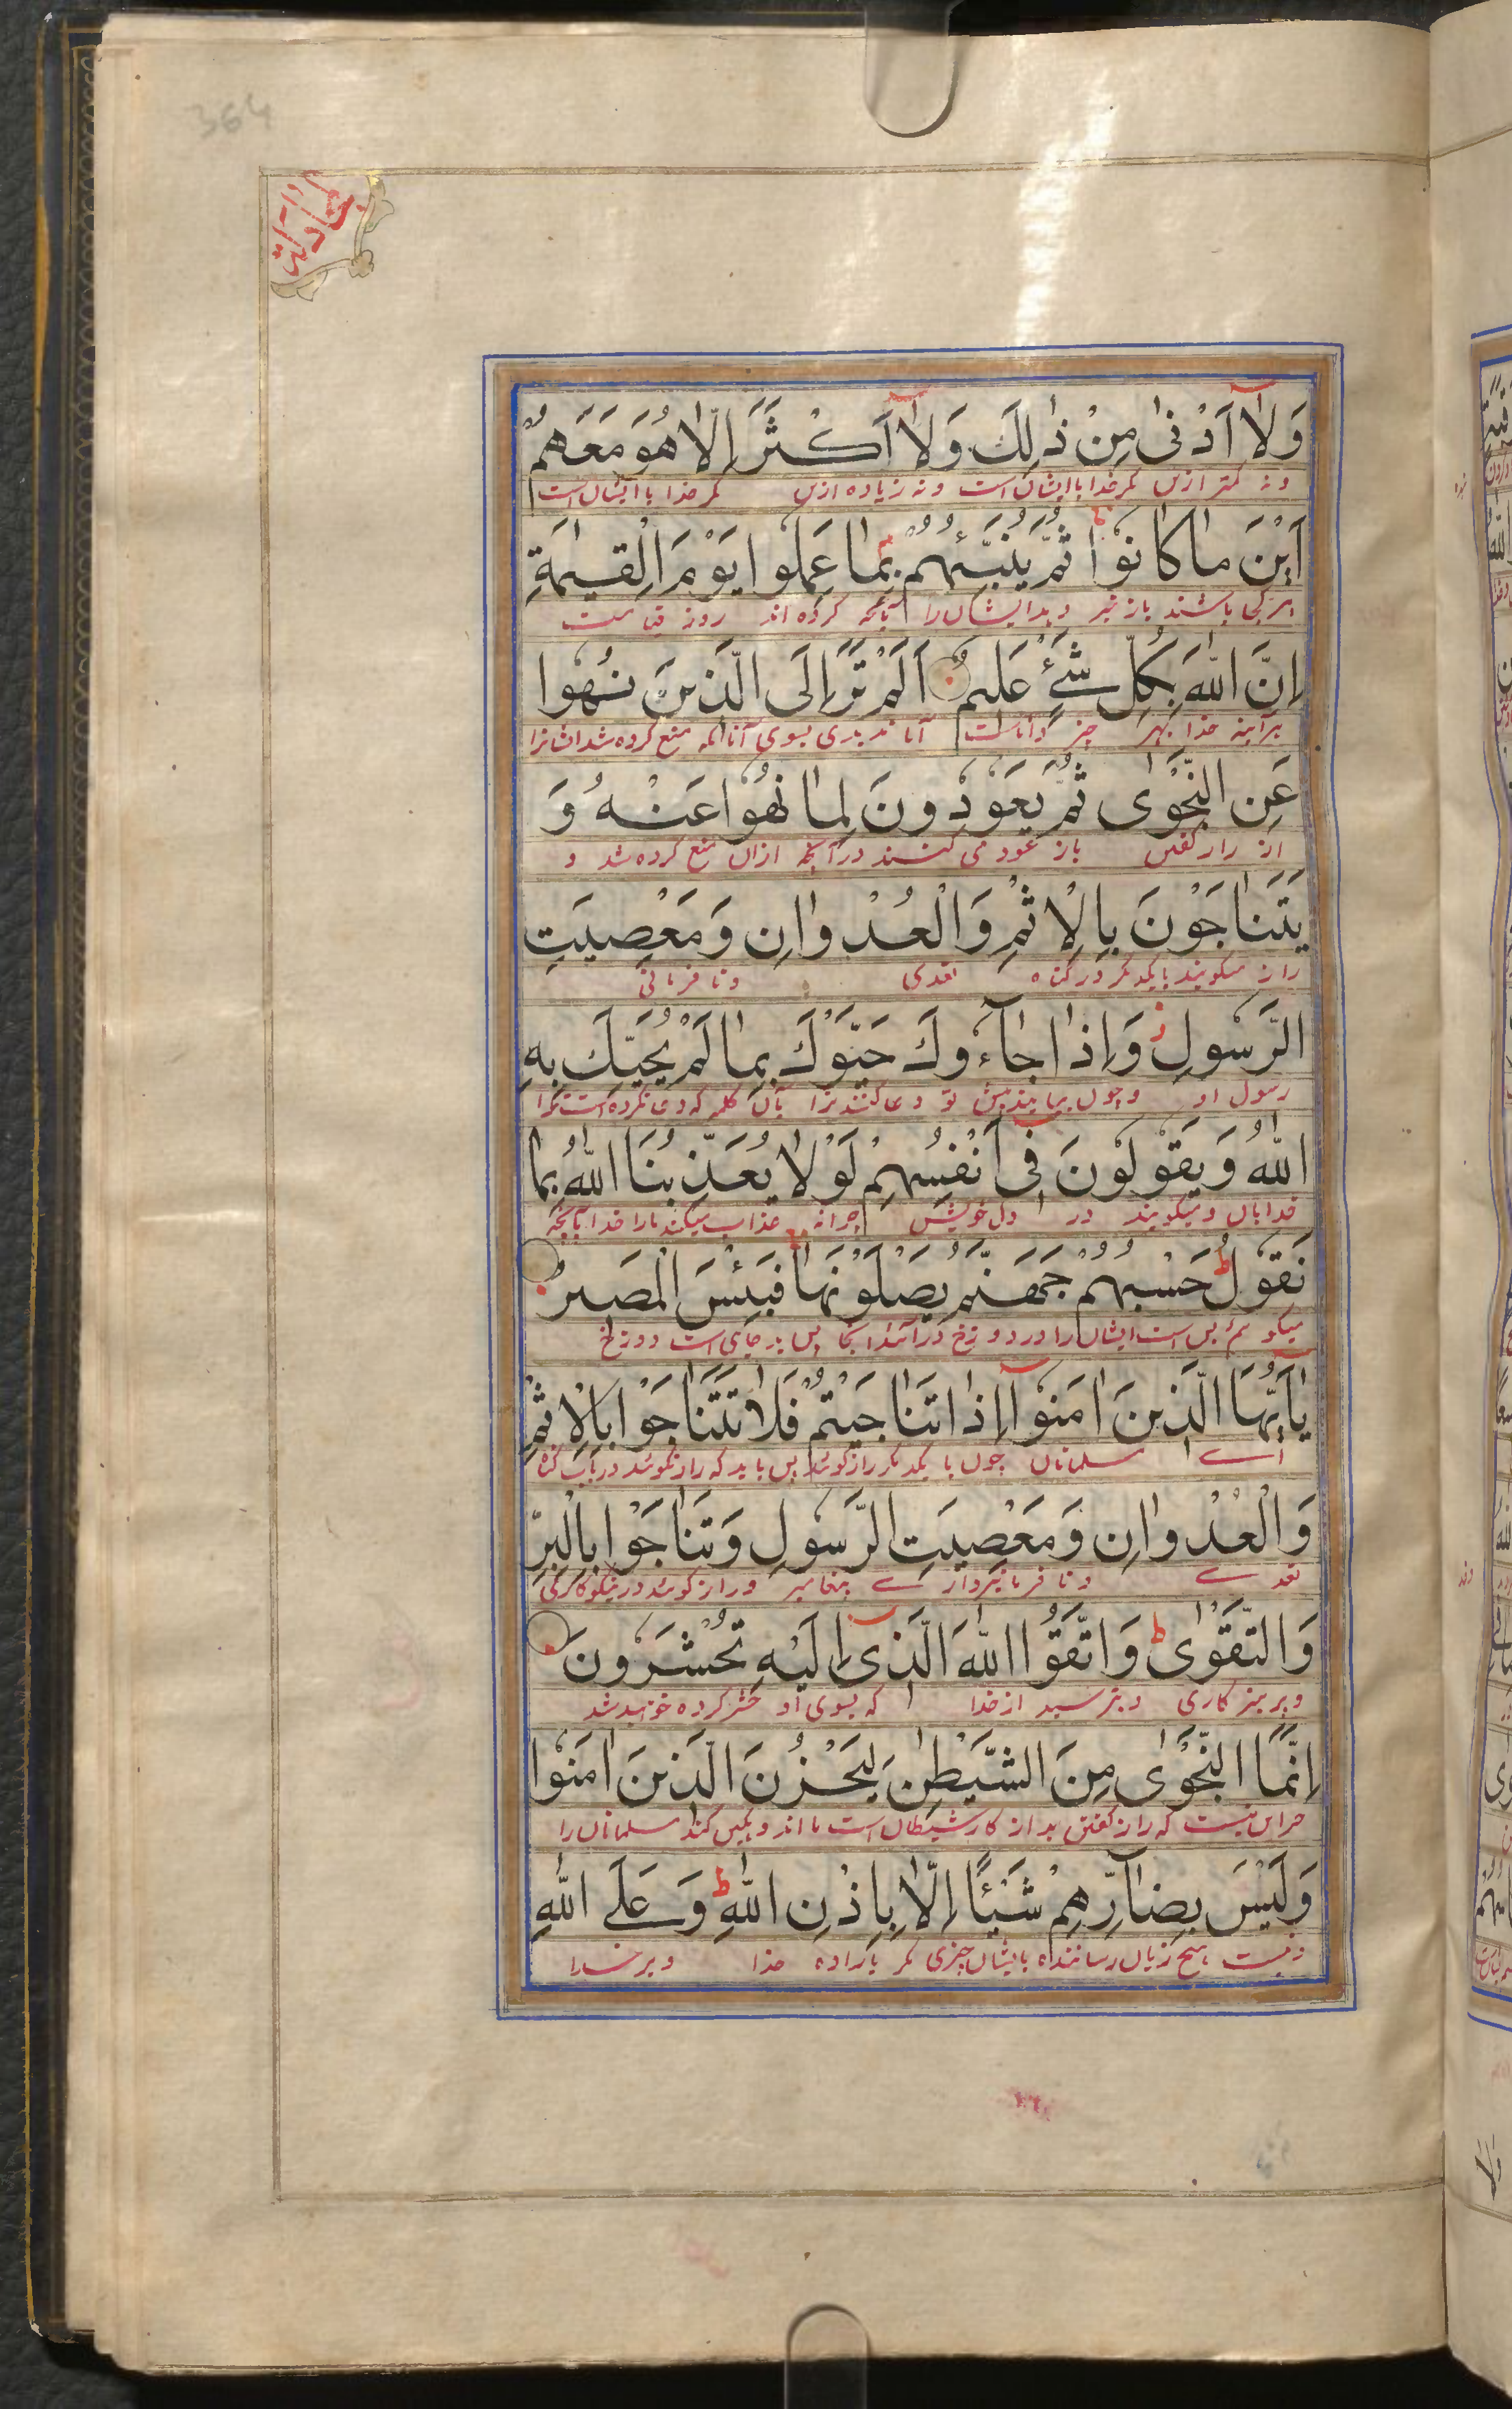 364
مجادلة
وَلَآ اَدْنٰى مِنْ ذٰلِكَ وَلَآ اَكْثَرَ اِلَّا هُوَ مَعَهُمْ
ونه کمتر ازین مگر خدا با ایشان است ونه زیاده ازین مگر خدا با ایشان است
اَيْنَ مَا كَانُوْا ثُمَّ يُنَبِّئُهُمْ بِمَا عَمِلُوا يَوْمَ الْقِيٰمَةِ
هر کجا باشند باز خبر دهد ایشان را بآنچه کرده اند روز قیامت
اِنَّ اللّٰهَ بِكُلِّ شَيْءٍ عَلِيمٌ اَلَمْ تَرَ اِلَى الَّذِينَ نُهُوا
هرآینه خدا بهر چیز داناست آیا ندیدی بسوی آنانکه منع کرده شد ایشانرا
عَنِ النَّجْوٰى ثُمَّ يَعُوْدُونَ لِمَا نُهُوْا عَنْهُ وَ
از راز گفتن باز عود می کنند در آنچه ازان منع کرده شد و
يَتَنَاجَوْنَ بِالْاِثْمِ وَالْعُدْوَانِ وَمَعْصِيَتِ
راز میگویند با یکدیگر در گناه تعدی ونا فرمانی
الرَّسُولِ وَاِذَا جَآءُوكَ حَيَّوْكَ بِمَا لَمْ يُحَيِّكَ بِهِ
رسول او وچون بیایند پیش تو دعا کنند ترا بآن کلمه که دعا نکرده است ترا
اللّٰهُ وَيَقُوْلُوْنَ فِى اَنْفُسِهِمْ لَوْلَا يُعَذِّبُنَا اللّٰهُ بِمَا
خدا بان ومیگویند در دل خویش چرا نه عذاب میکند مارا خدا بآنچه
نَقُوْلُ حَسْبُهُمْ جَهَنَّمُ يَصْلَوْنَهَا فَبِئْسَ الْمَصِيرُ
میگوئیم بس است ایشان را دوزخ در آیند آنجا پس بد جای است دوزخ
يٰاَيُّهَا الَّذِينَ اٰمَنُوْآ اِذَا تَنَاجَيْتُمْ فَلَا تَتَنَاجَوْا بِالْاِثْمِ
اے مسلمانان چون با یکدیگر راز گوئید پس باید که راز نگوئید در باب گناه
وَالْعُدْوَانِ وَمَعْصِيَتِ الرَّسُولِ وَتَنَاجَوْا بِالْبِرِّ
تعدے ونا فرمانبردارے پیغامبر وراز گوئید در نیکو کاری
وَالتَّقْوٰى وَاتَّقُوا اللّٰهَ الَّذِى اِلَيْهِ تُحْشَرُونَ
وپرهیز کاری وبترسید از خدا که بسوی او حشر کرده خواهید شد
اِنَّمَا النَّجْوٰى مِنَ الشَّيْطٰنِ لِيَحْزُنَ الَّذِينَ اٰمَنُوْا
جز این نیست که راز گفتن بد از کار شیطان است تا اندوهگین کند مسلمانان را
وَلَيْسَ بِضَآرِّهِمْ شَيْئًا اِلَّا بِاِذْنِ اللّٰهِ وَعَلَى اللّٰهِ
ونیست هیچ زیان رساننده بایشان چیزی مگر باراده خدا وبر خدا